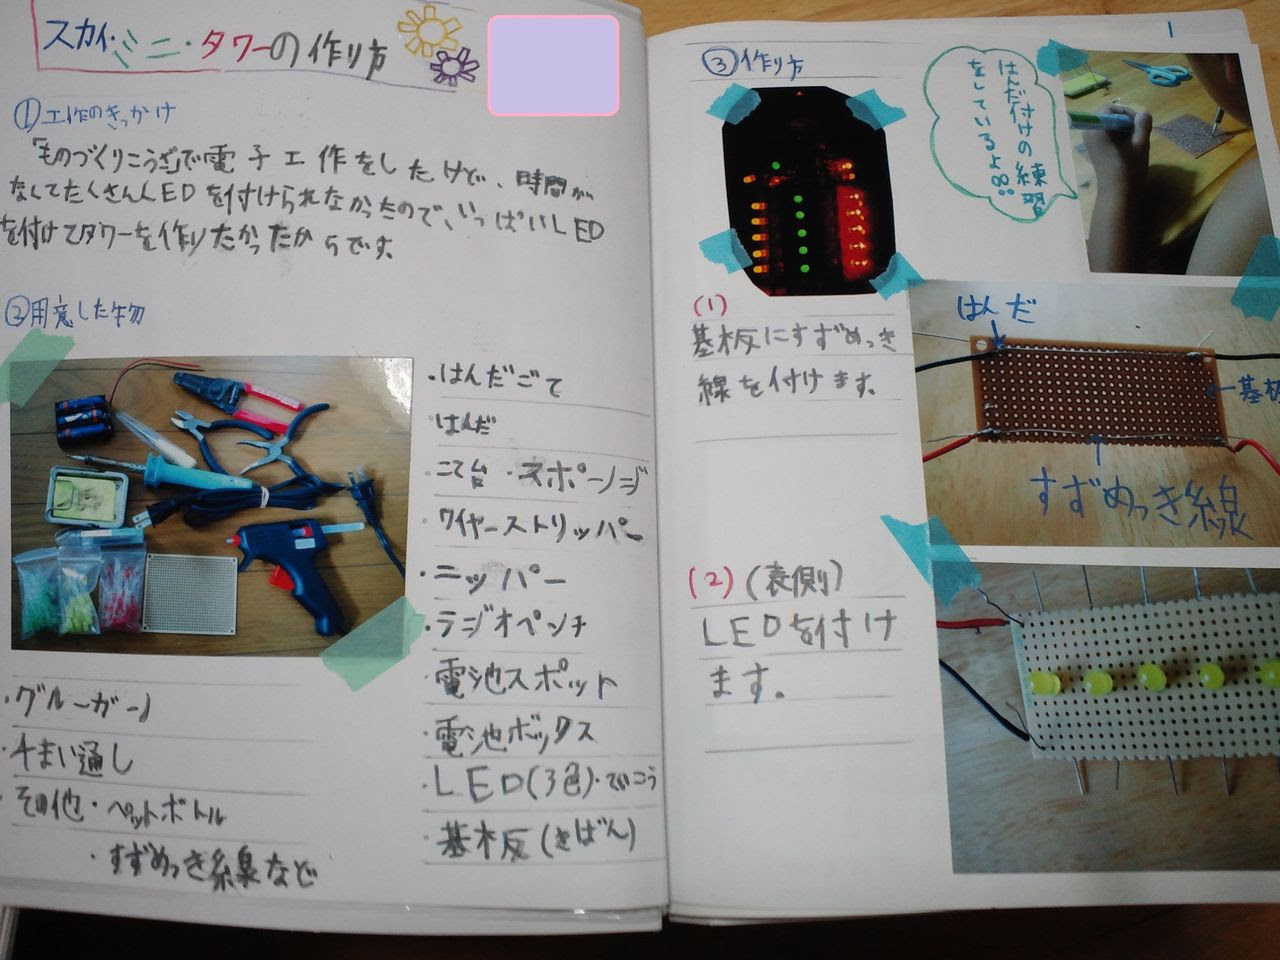 スカイ・ミニ・タワーの作り方
①工作のきっかけ
「ものづくりこうざ」で電子工作をしたけど、時間が
なくてたくさんLEDを付けられなかったので、いっぱいLED
を付けてタワーを作りたかったからです。
②用意した物
・はんだごて
・はんだ
・こて台・スポンジ
・ワイヤーストリッパー
・ニッパー
・ラジオペンチ
・電池スポット
・電池ボックス
・LED(3色)・ていこう
・基板(きばん)
・グルーガン
・千まい通し
・その他・ペットボトル
・すずめっき線など
1
③作り方
はんだ付けの練習
をしているよ
(1)
基板にすずめっき
線を付けます。
はんだ
←基板
すずめっき線
(2)(表側)
LEDを付け
ます。